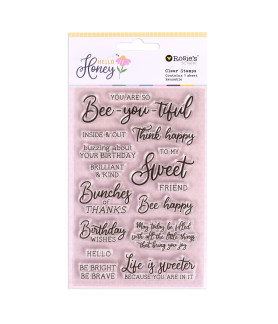 HELLO
Honey
Rosie's
Clear Stamps
Contains 1 sheet
Reusable
YOU ARE SO
Bee-you-tiful
INSIDE & OUT
Think happy
buzzing about
YOUR BIRTHDAY
TO MY
Sweet
FRIEND
BRILLIANT
& KIND
Bunches
of
THANKS
Bee happy
Birthday
WISHES
May today be filled
with all the little things
that bring you joy
HELLO
BE BRIGHT
BE BRAVE
Life is sweeter
BECAUSE YOU ARE IN IT